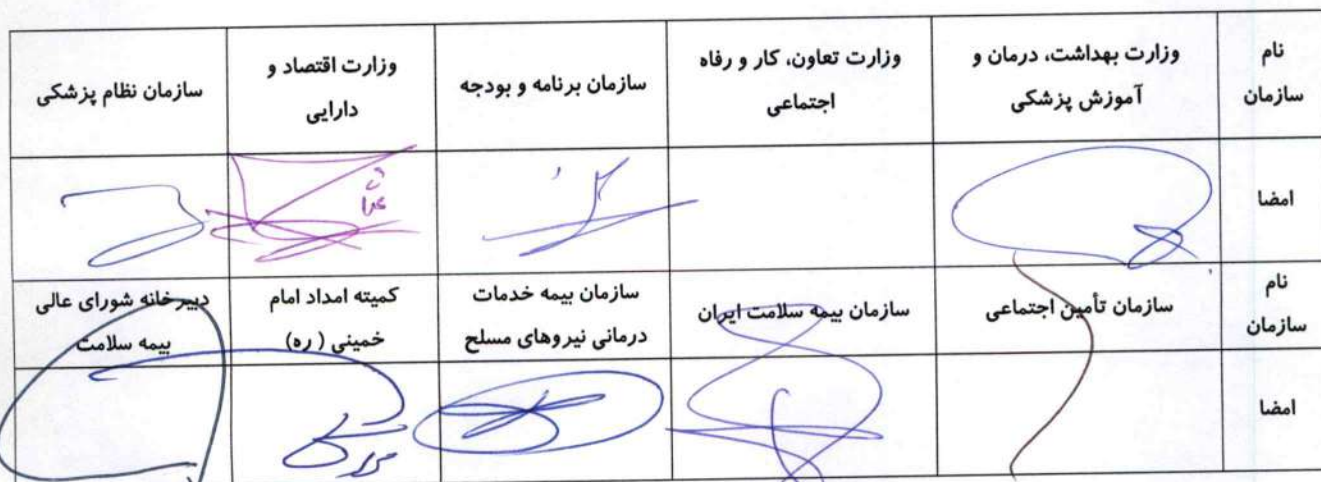 نام
سازمان
وزارت بهداشت، درمان و
آموزش پزشکی
وزارت تعاون، کار و رفاه
اجتماعی
سازمان برنامه و بودجه
وزارت اقتصاد و
دارایی
سازمان نظام پزشکی
امضا
نام
سازمان
سازمان تأمین اجتماعی
سازمان بیمه سلامت ایران
سازمان بیمه خدمات
درمانی نیروهای مسلح
کمیته امداد امام
خمینی ( ره)
دبیرخانه شورای عالی
بیمه سلامت
امضا